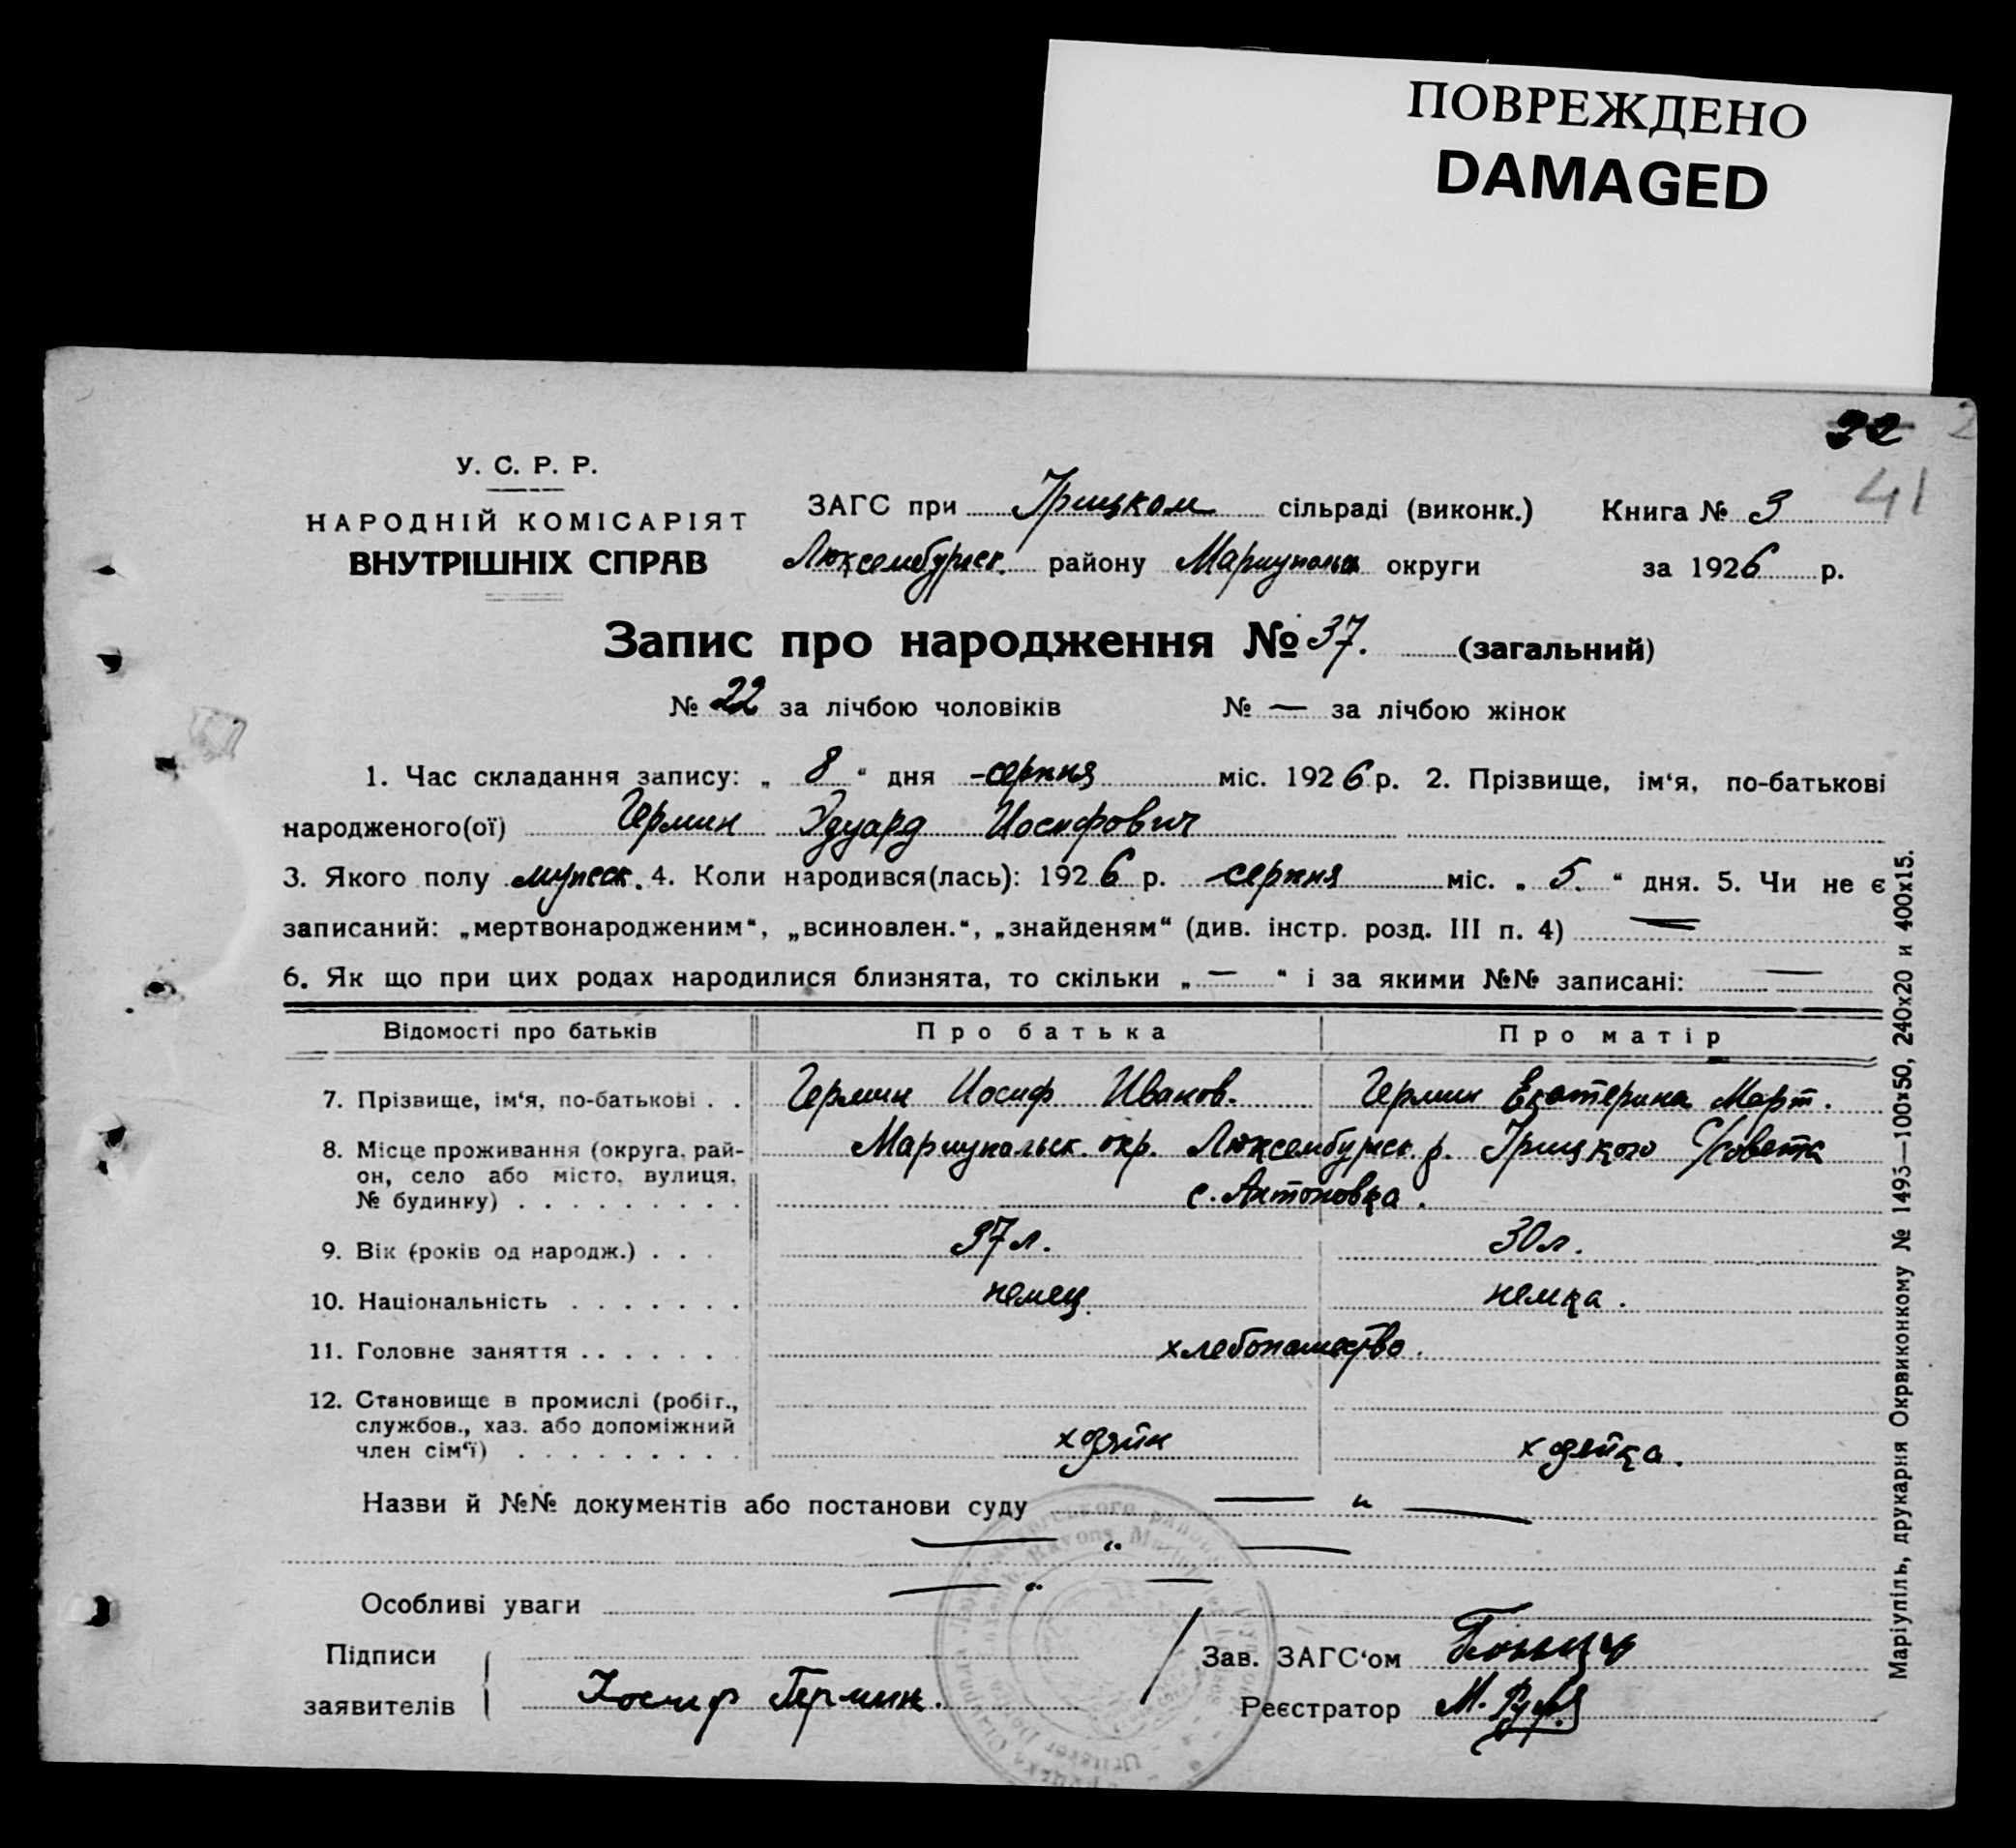 ПОВРЕЖДЕНО
DAMAGED
22
41
У. С. Р. Р.
НАРОДНІЙ КОМІСАРІЯТ
ВНУТРІШНІХ СПРАВ
ЗАГС при Грицком сільраді (виконк.) Книга № 3
Люксембургск. району Мариупольск округи за 1926 р.
Запис про народження № 37. (загальний)
№ 22 за лічбою чоловіків № — за лічбою жінок
1. Час складання запису: „ 8 “ дня серпня міс. 1926 р. 2. Прізвище, ім‘я, по-батькові
народженого(ої) Гермин Эдуард Иосифович
3. Якого полу мужеск. 4. Коли народився(лась): 1926 р. серпня міс. „ 5. “ дня. 5. Чи не є
записаний: „мертвонародженим“, „всиновлен.“, „знайденям“ (див. інстр. розд. III п. 4) —
6. Як що при цих родах народилися близнята, то скільки „ — “ і за якими №№ записані: —
Відомості про батьків Про батька Про матір
7. Прізвище, ім‘я, по-батькові . . Гермин Иосиф Иванов. Гермин Екатерина Март.
8. Місце проживання (округа, рай- Мариупольск. окр. Люксембургск. р. Грицкого С/совета
он, село або місто, вулиця,
№ будинку) . . . . . . . . . с. Антоновка.
9. Вік (років од народж.) . . . 37 л. 30 л.
10. Національність . . . . . . . немец. немка.
11. Головне заняття . . . . . . . хлебопашество.
12. Становище в промислі (робіт.,
службов., хаз. або допоміжний
член сім‘ї) . . . . . . . . . хозяйн хозяйка.
Назви й №№ документів або постанови суду — „ —
— „ —
Особливі уваги — „ —
Підписи Зав. ЗАГС‘ом
заявителів Иосиф Гермин. Реєстратор М.
Маріупіль, друкарня Окрвиконкому № 1493—100×50, 240x20 и 400x15.